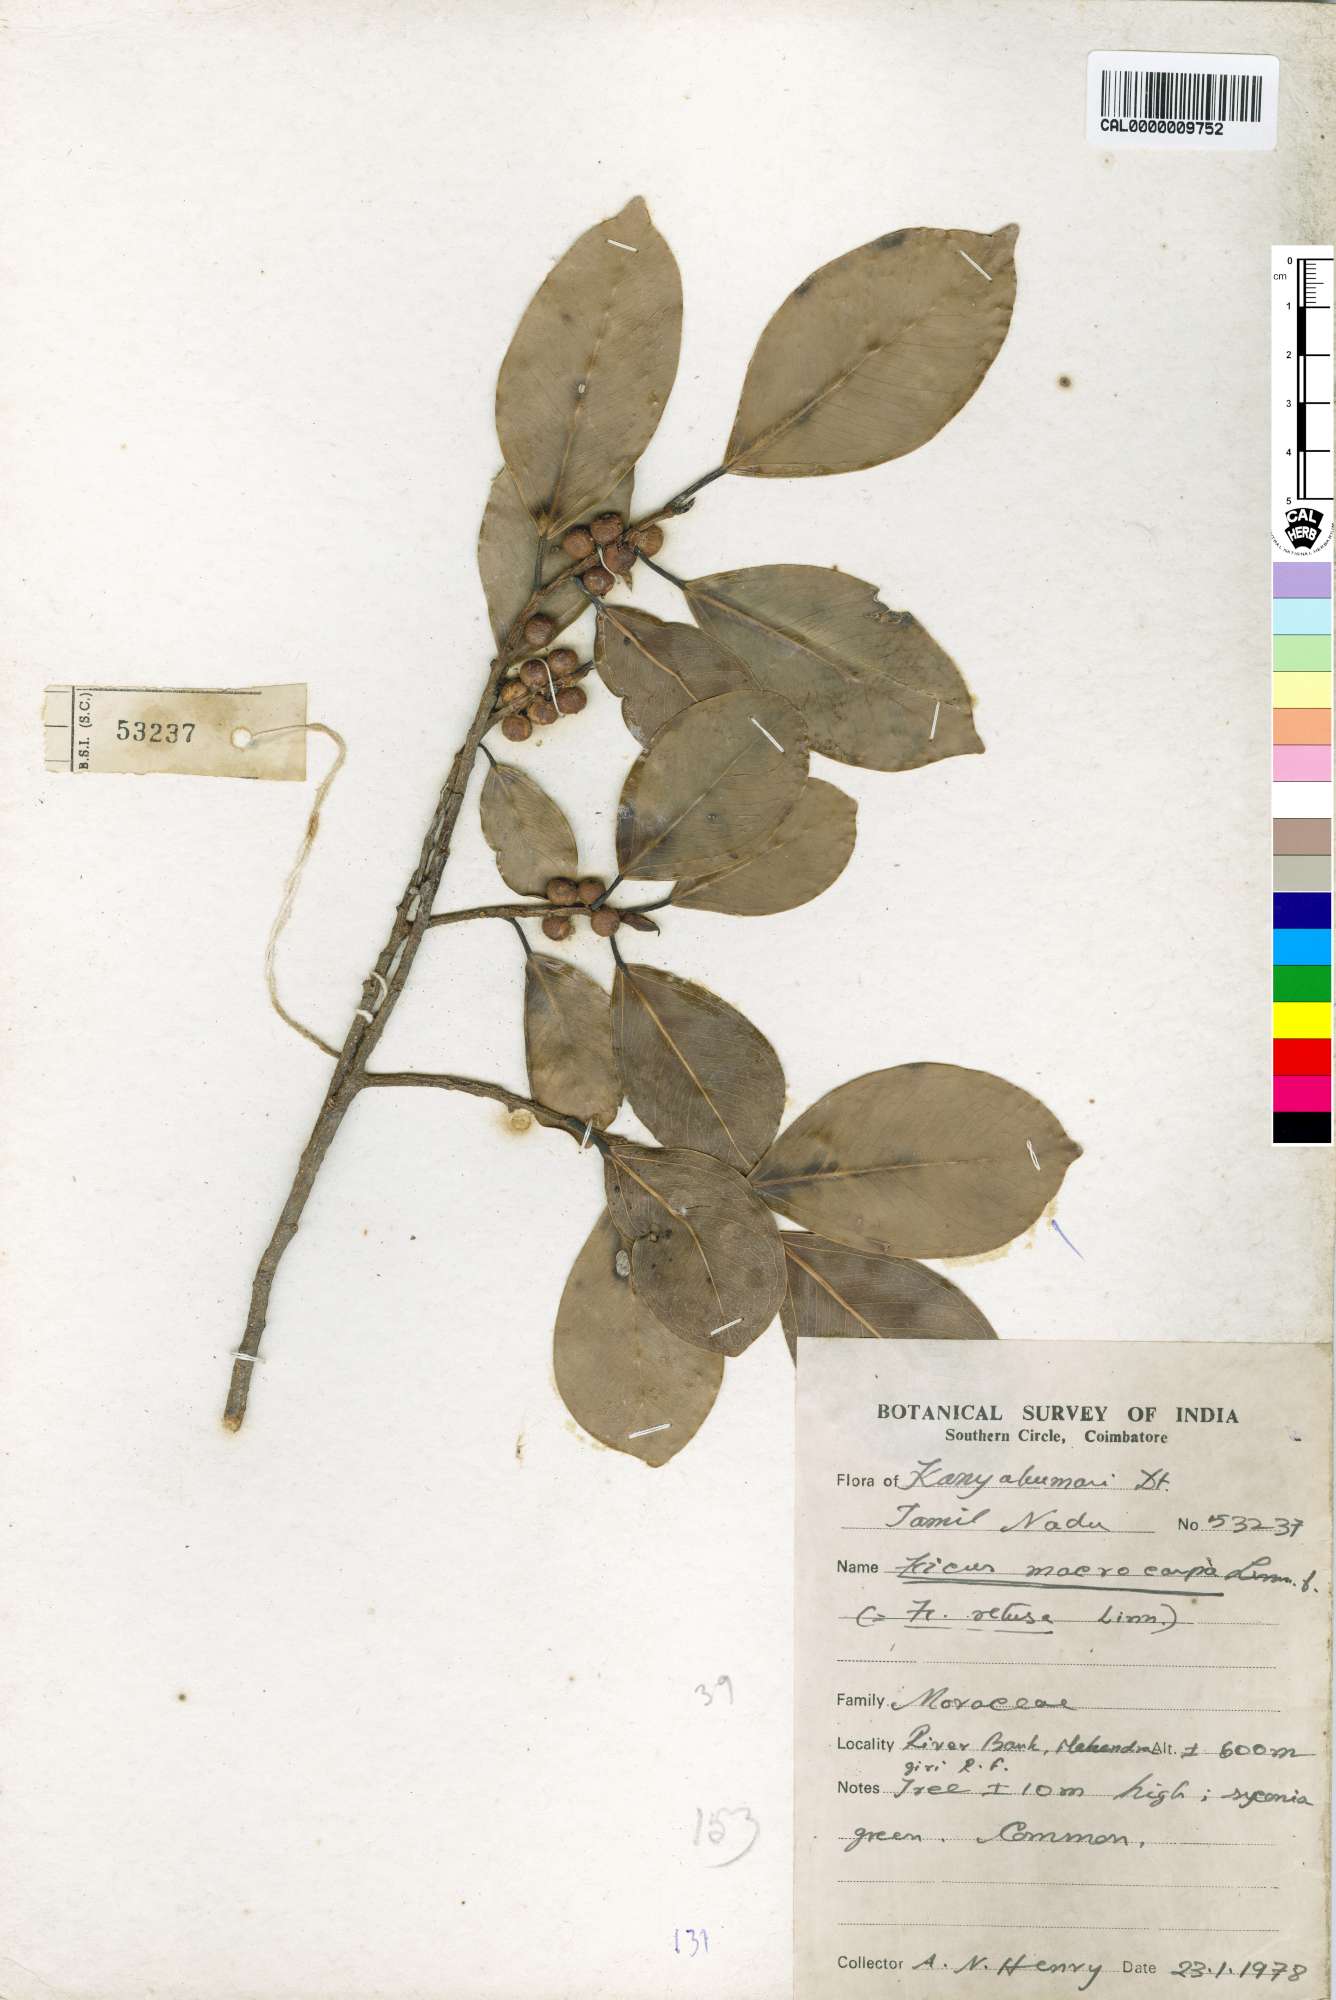 CAL0000009752
0
cm
1
2
3
4
5
CAL
HERB
B.S.I. (S.C.)
53237
BOTANICAL SURVEY OF INDIA
Southern Circle, Coimbatore
Flora of Kanyakumari Dt.
Tamil Nadu No 53237
Name Ficus macrocarpa Linn. f.
(= F. retusa Linn.)
Family Moraceae
Locality River Bank, Mahendra Alt. ± 600m
giri R.F.
Notes Tree ± 10m high; syconia
green. Common.
Collector A. N. Henry Date 23.1.1978
39
153
131